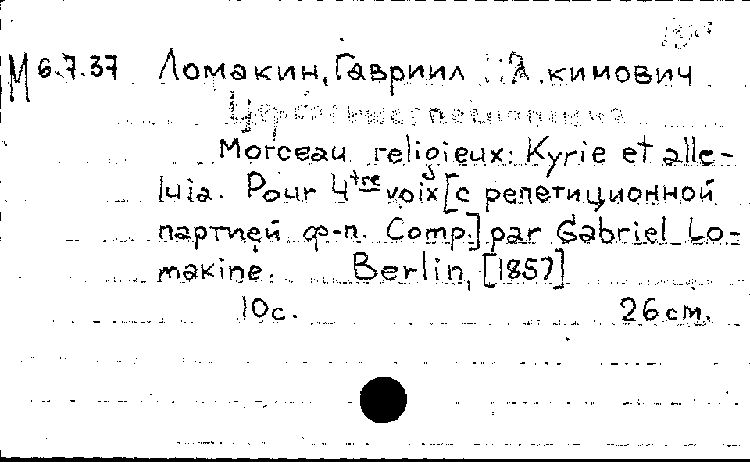 М 6.7.37 Ломакин, Гавриил Якимович
Церковные песнопения
Morceau religieux: Kyrie et alle-
luia. Pour 4tre voix [с репетиционной
партией ф-п. Comp.] par Gabriel Lo-
makine. Berlin, [1857]
10с. 26cm.